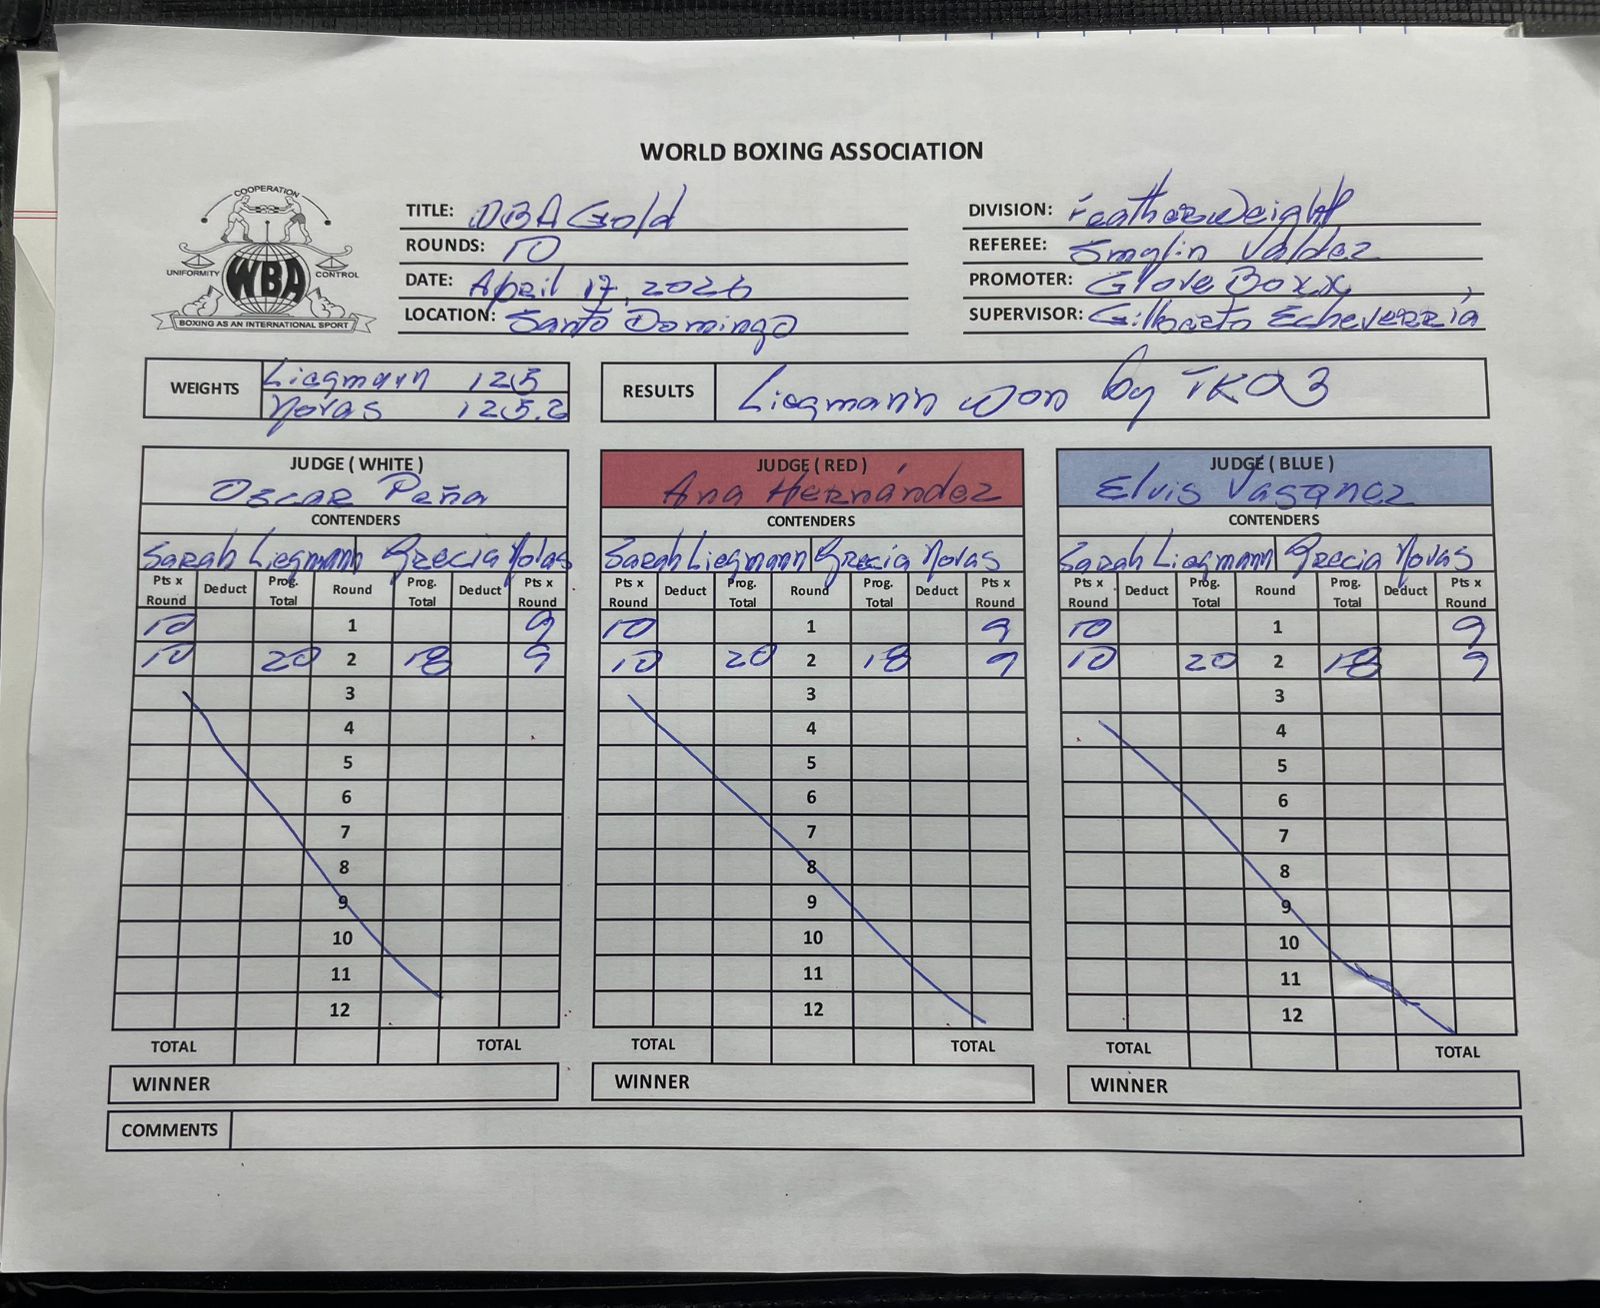 WORLD BOXING ASSOCIATION
COOPERATION
UNIFORMITY WBA CONTROL
BOXING AS AN INTERNATIONAL SPORT
TITLE: WBA Gold
ROUNDS: 10
DATE: April 17, 2026
LOCATION: Santo Domingo
DIVISION: Featherweight
REFEREE: Smylin Valdez
PROMOTER: Glove Boxx
SUPERVISOR: Gilberto Echeverría
WEIGHTS Liegmann 125
Novas 125.2
RESULTS Liegmann won by TKO3
JUDGE ( WHITE ) JUDGE ( RED ) JUDGE ( BLUE )
Oscar Peña Ana Hernández Elvis Vasquez
CONTENDERS CONTENDERS CONTENDERS
Sarah Liegmann Grecia Novas Sarah Liegmann Grecia Novas Sarah Liegmann Grecia Novas
Pts x Round Deduct Prog. Total Round Prog. Total Deduct Pts x Round Pts x Round Deduct Prog. Total Round Prog. Total Deduct Pts x Round Pts x Round Deduct Prog. Total Round Prog. Total Deduct Pts x Round
10 1 9 10 1 9 10 1 9
10 20 2 18 9 10 20 2 18 9 10 20 2 18 9
3 3 3
4 4 4
5 5 5
6 6 6
7 7 7
8 8 8
9 9 9
10 10 10
11 11 11
12 12 12
TOTAL TOTAL TOTAL TOTAL TOTAL TOTAL
WINNER WINNER WINNER
COMMENTS